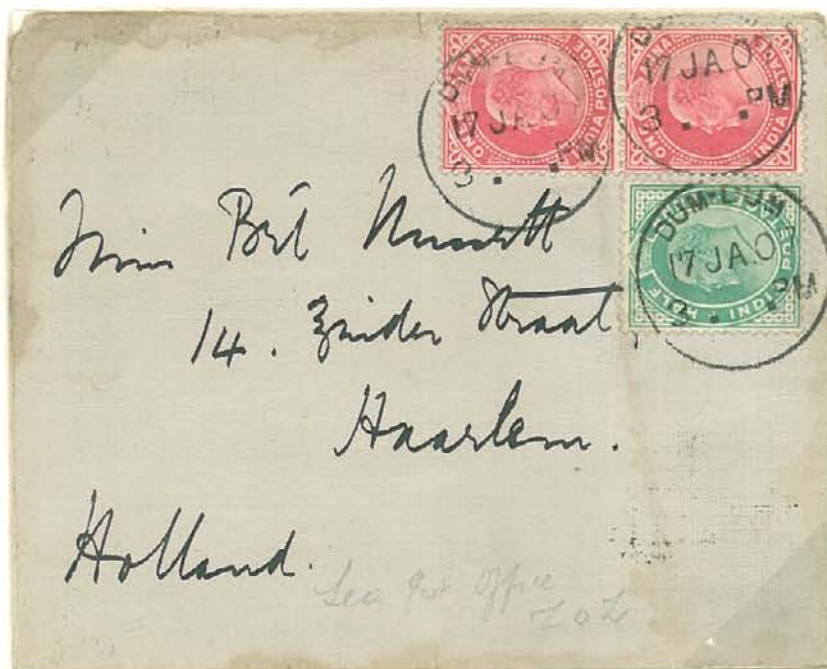 DUM-DUM
17 JA 0
3 . . PM
17 JA 0
3 . . PM
DUM-DUM
17 JA 0
3 . . PM
INDIA POSTAGE
INDIA POSTAGE
HALF
Miss
14. Zuider Straat,
Haarlem.
Holland.
Sea Post Office